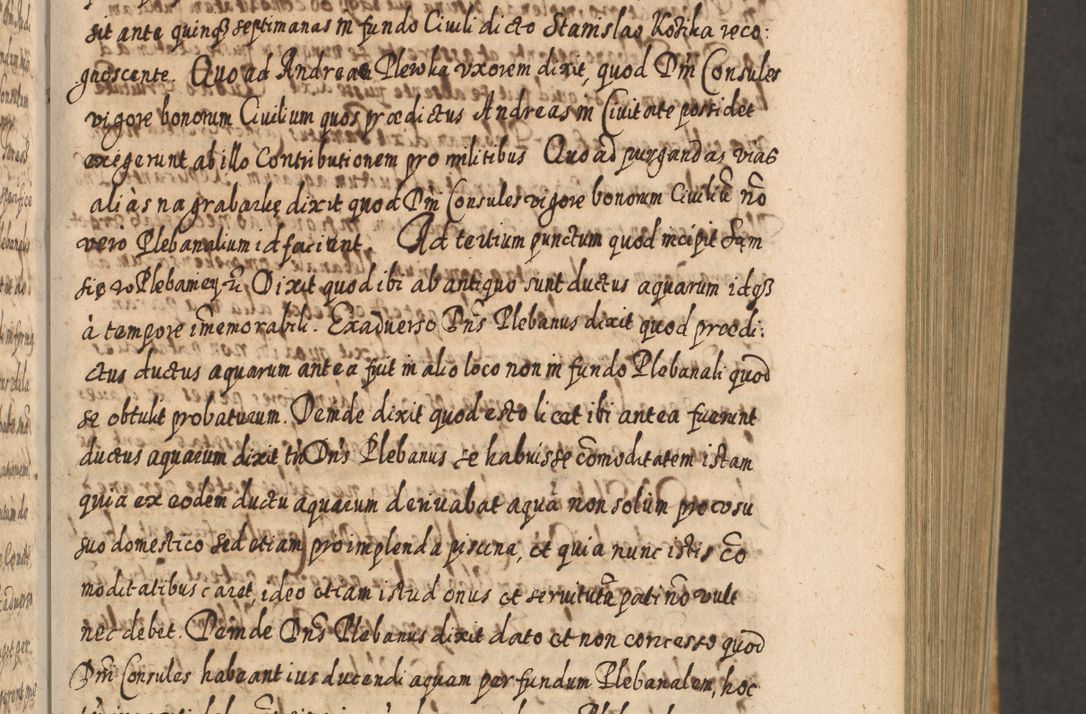 sit ante quinq₃ septimanas in fundo Civili dicto Stanislao Kotika reco:
gnoscente. Quo ad Andreae Plewka uxorem dixit, quod Dnī Consules
vigore bonorum Civilium quos praedictus Andreas in Civitate possidet
exegerunt ab illo Contributionem pro militibus Quo ad purgandas vias
aliàs na grabarkę dixit quod Dnī Consules vigore bonorum Civiliū nō
vero Plebanalium id faciunt. Ad tertium punctum quod incipit Sam
się w Plebaniey
Dixit quod ibi ab antiquo sunt ductus aquarum idq₃
à tempore im̄emorabili. Ex adverso Dn̄s Plebanus dixit quod praedi:
ctus ductus aquarum antea fuit in alio loco non in fundo Plebanali quod
se obtulit probaturum. Deinde dixit quod esto licet ibi antea fuerunt
ductus aquarum dixit tn̄ Dn̄s Plebanus se habuisse com̄oditatem istam
quia ex eodem ductu aquarum derivabat aquā non solùm pro usu
suo domestico sed etiam pro implenda piscina, et quia nunc istis Com̄o
moditatibus caret, ideo etiam istud onus et servitutē pati nō vult
nec debet. Deinde Dn̄s Plebanus dixit dato et non concesso quod
Dnī Consules habeant ius ducendi aquam per fundum Plebanalem, hoc